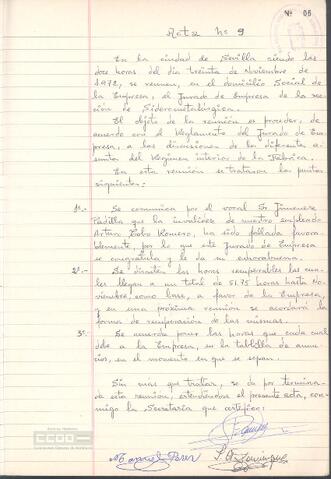 Nº 06
Acta Nº 9
En la ciudad de Sevilla siendo las
doce horas del día treinta de Noviembre de
1972, se reunen, en el domicilio Social de
la Empresa, el Jurado de Empresa de la sec-
ción de Siderometalúrgica.
El objeto de la reunión es proceder, de
acuerdo con el Reglamento del Jurado de Em-
presa, a las discusiones de la diferente a-
sunta del Régimen interior de la Fábrica.
En esta reunión se trataron los puntos
siguientes:
1º.- Se comunica por el vocal Sr. Jimenez
Padilla que la invalidez de nuestro empleado
Arturo Cobo Romero, ha sido fallada favora-
blemente, por lo que este Jurado de Empresa
se congratula y le da su enhorabuena.
2º.- Se discuten las horas recuperables las cua-
les llegan a un total de 51.75 horas hasta No-
viembre, como base, a favor de la Empresa, y
en una próxima reunión se acordará la
forma de recuperación de las mismas.
3º.- Se acuerda poner las horas que cada cual
debe a la Empresa, en la tablilla de anun-
cios, en el momento en que se sepan.
Sin más que tratar, se da por termina-
da esta reunión, extendiendose el presente acta, con-
migo la Secretaria que certifico:
Manuel Perez
CCOO